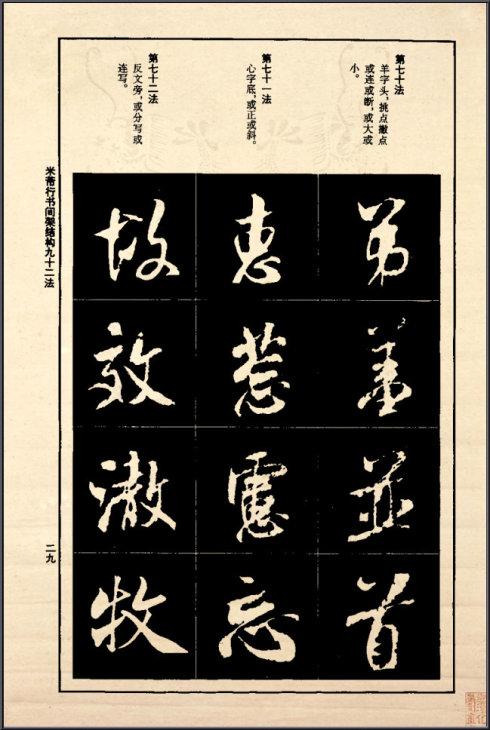 第七十法
羊字头，挑点撇点
或连或断，或大或
小。
第七十一法
心字底，或正或斜。
第七十二法
反文旁，或分写或
连写。
弟
善
並
首
惠
惹
慮
忘
故
效
澈
牧
米芾行书间架结构九十二法
二九